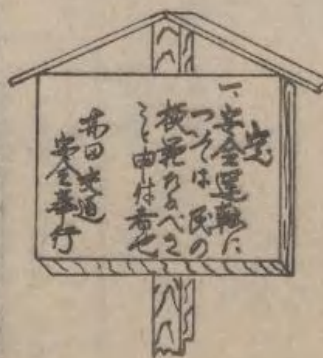 定
一、安全運転に
ついては 民の
模範たるべき
こと 申付者也
幸田交通
安全奉行